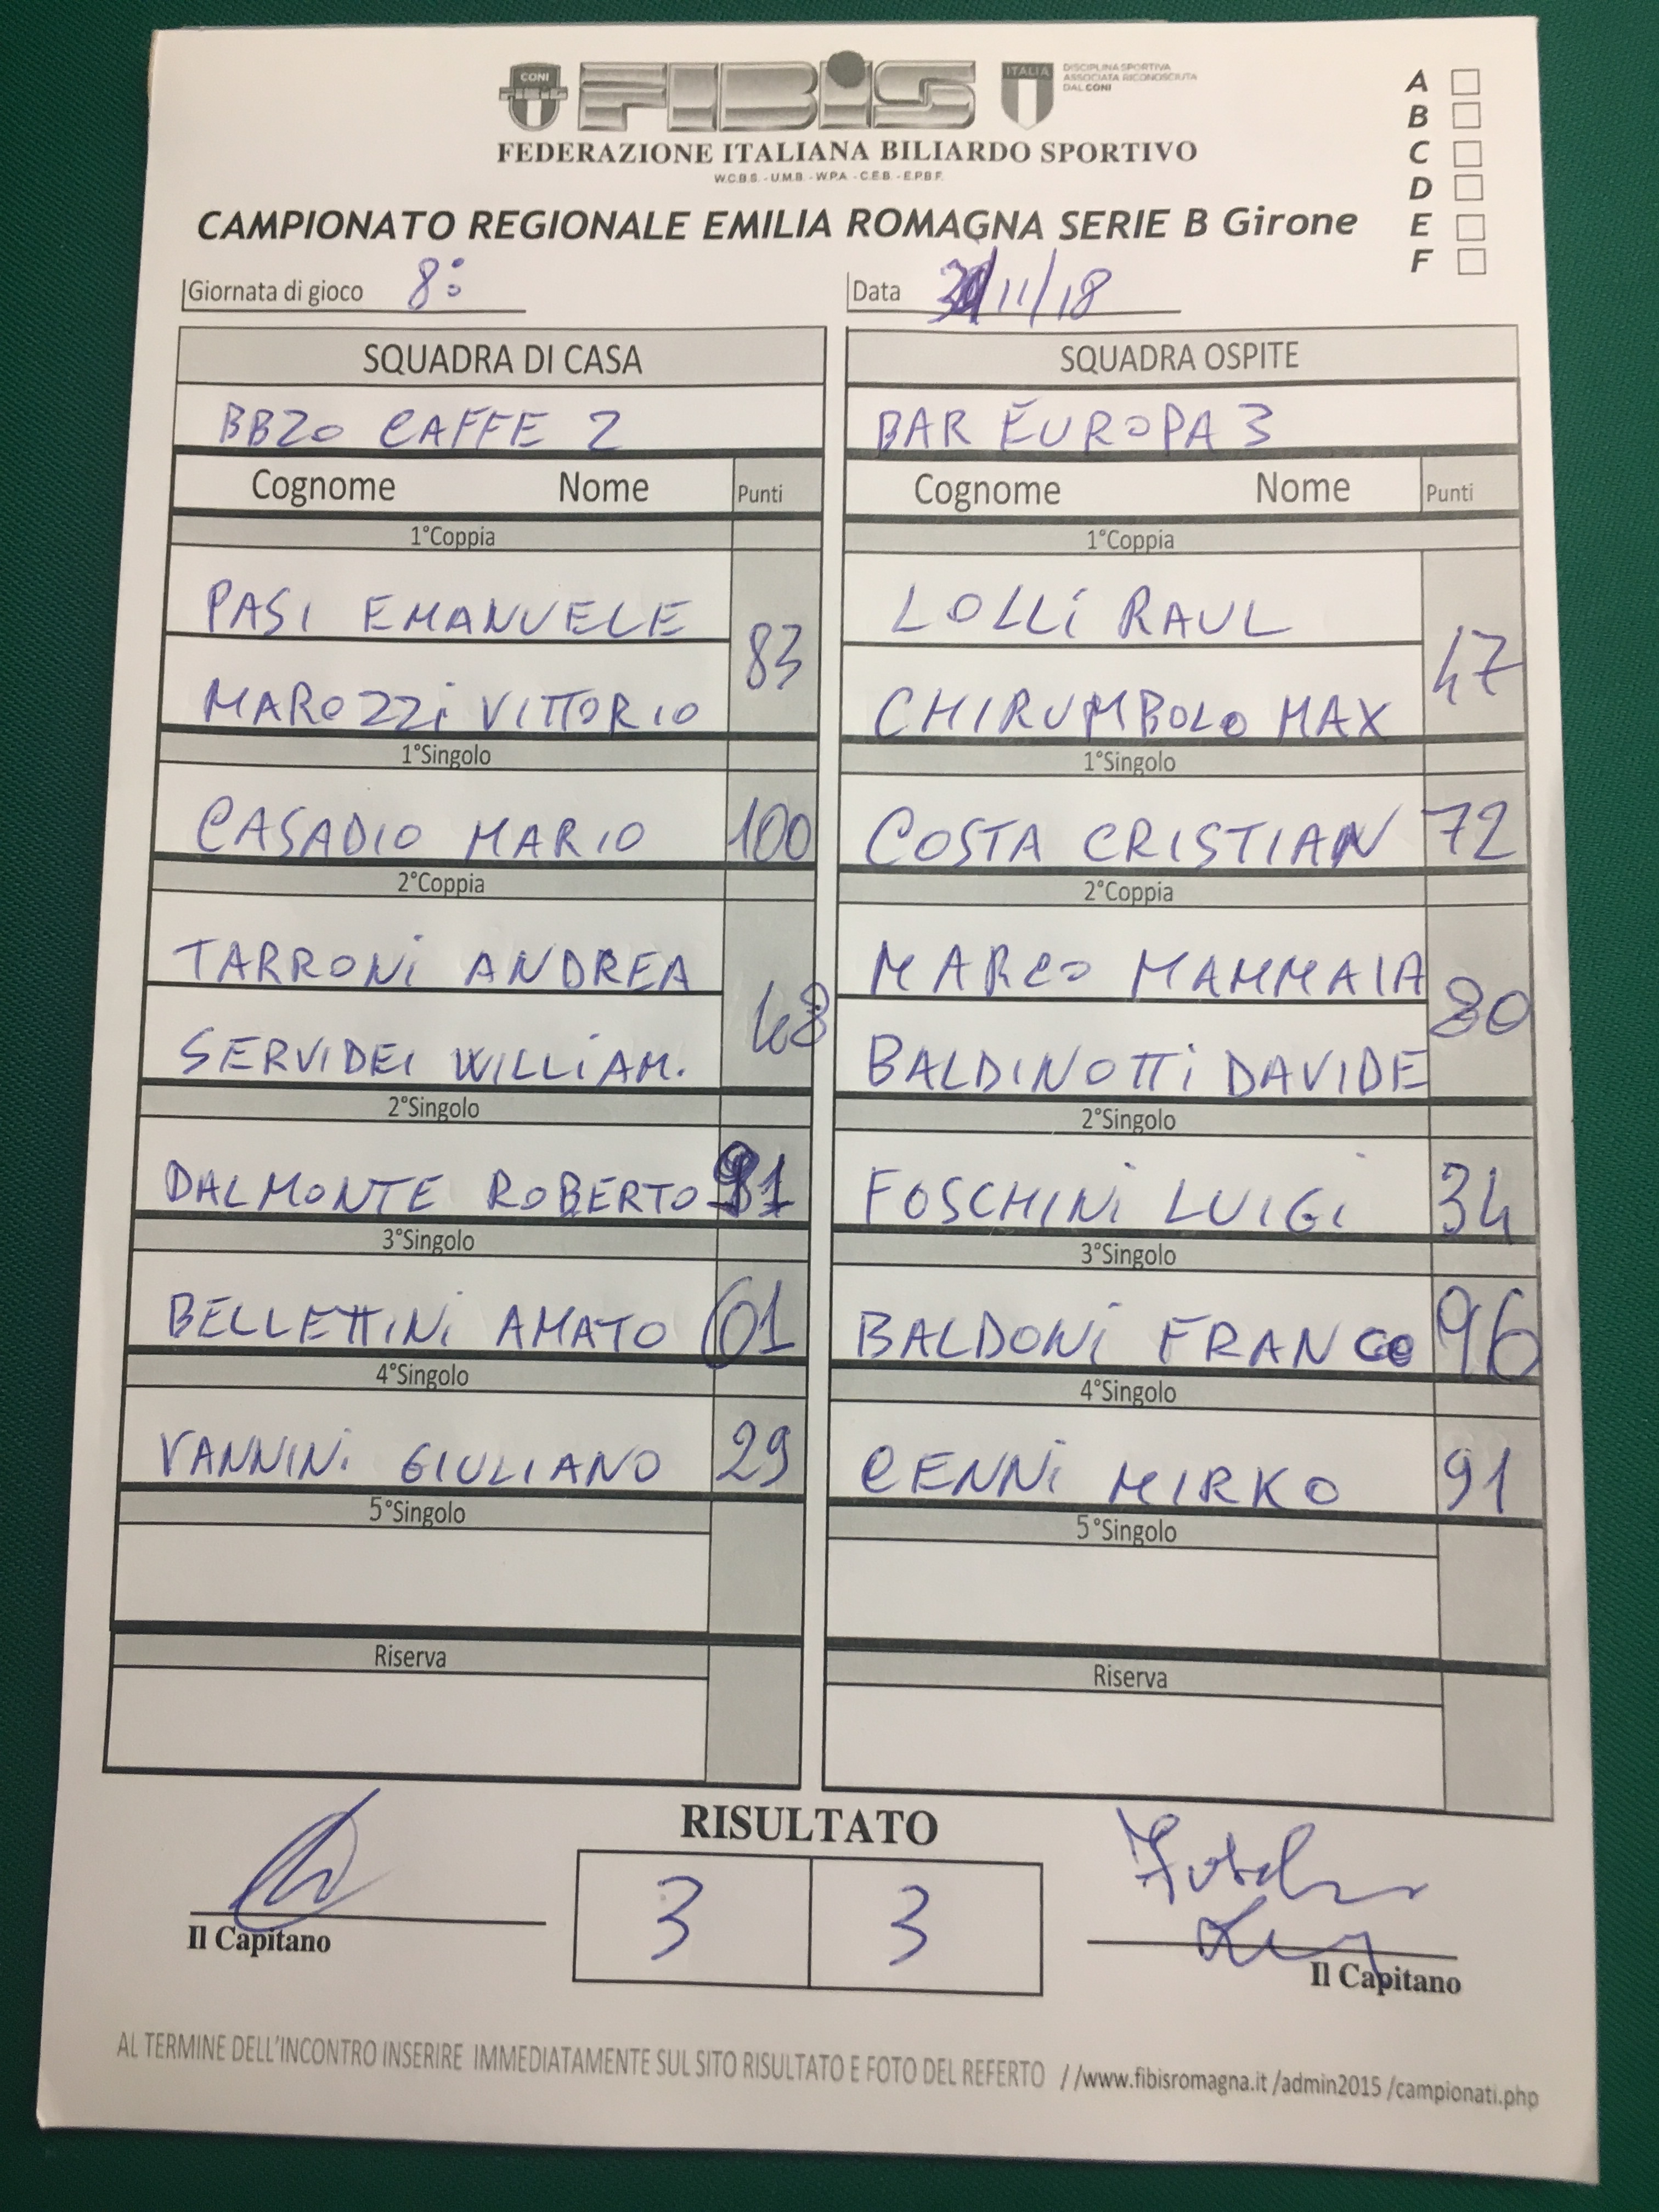 CONI
FIBiS
ITALIA
DISCIPLINA SPORTIVA
ASSOCIATA RICONOSCIUTA
DAL CONI
FEDERAZIONE ITALIANA BILIARDO SPORTIVO
W.C.B.S. - U.M.B. - W.P.A. - C.E.B. - E.P.B.F.
A
B
C
D
E
F
CAMPIONATO REGIONALE EMILIA ROMAGNA SERIE B Girone
Giornata di gioco 8°
Data /11/18
SQUADRA DI CASA
BB20 CAFFE 2
Cognome Nome Punti
1°Coppia
PASI EMANUELE
83
MAROZZi VITTORIO
1°Singolo
CASADIO MARIO 100
2°Coppia
TARRONi ANDREA
48
SERVIDEI WILLIAM.
2°Singolo
DALMONTE ROBERTO
3°Singolo
BELLETTINi AMATO 61
4°Singolo
VANNINi GIULIANO 29
5°Singolo
Riserva
SQUADRA OSPITE
BAR EUROPA 3
Cognome Nome Punti
1°Coppia
LOLLi RAUL
47
CHIRUMBOLO MAX
1°Singolo
COSTA CRISTIAN 72
2°Coppia
MARCO MAMMAIA
80
BALDINOTTi DAVIDE
2°Singolo
FOSCHINi LUIGI 34
3°Singolo
BALDONi FRANCO 96
4°Singolo
CENNi MIRKO 91
5°Singolo
Riserva
RISULTATO
3 3
Il Capitano
Il Capitano
AL TERMINE DELL'INCONTRO INSERIRE IMMEDIATAMENTE SUL SITO RISULTATO E FOTO DEL REFERTO //www.fibisromagna.it /admin2015 /campionati.php